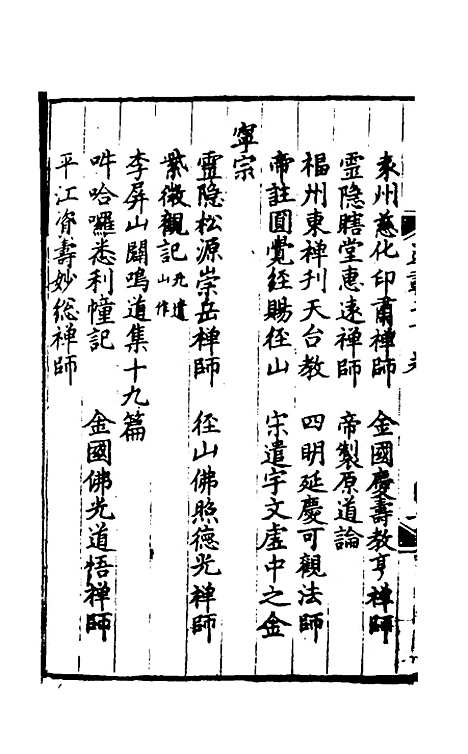 袁州慈化印肅禪師　金國慶壽教亨禪師
靈隐瞎堂惠遠禪師　帝製原道論
福州東禅刋天台教　四明延慶可觀法師
帝註圓覺經賜径山　宋遣宇文虗中之金
寕宗
靈隐松源崇岳禅師　径山佛照德光禅師
紫微觀記元遺山作
李屏山闢鳴道集十九篇
吽哈囉悉利幢記　金國佛光道悟禅師
平江資壽妙總禅師